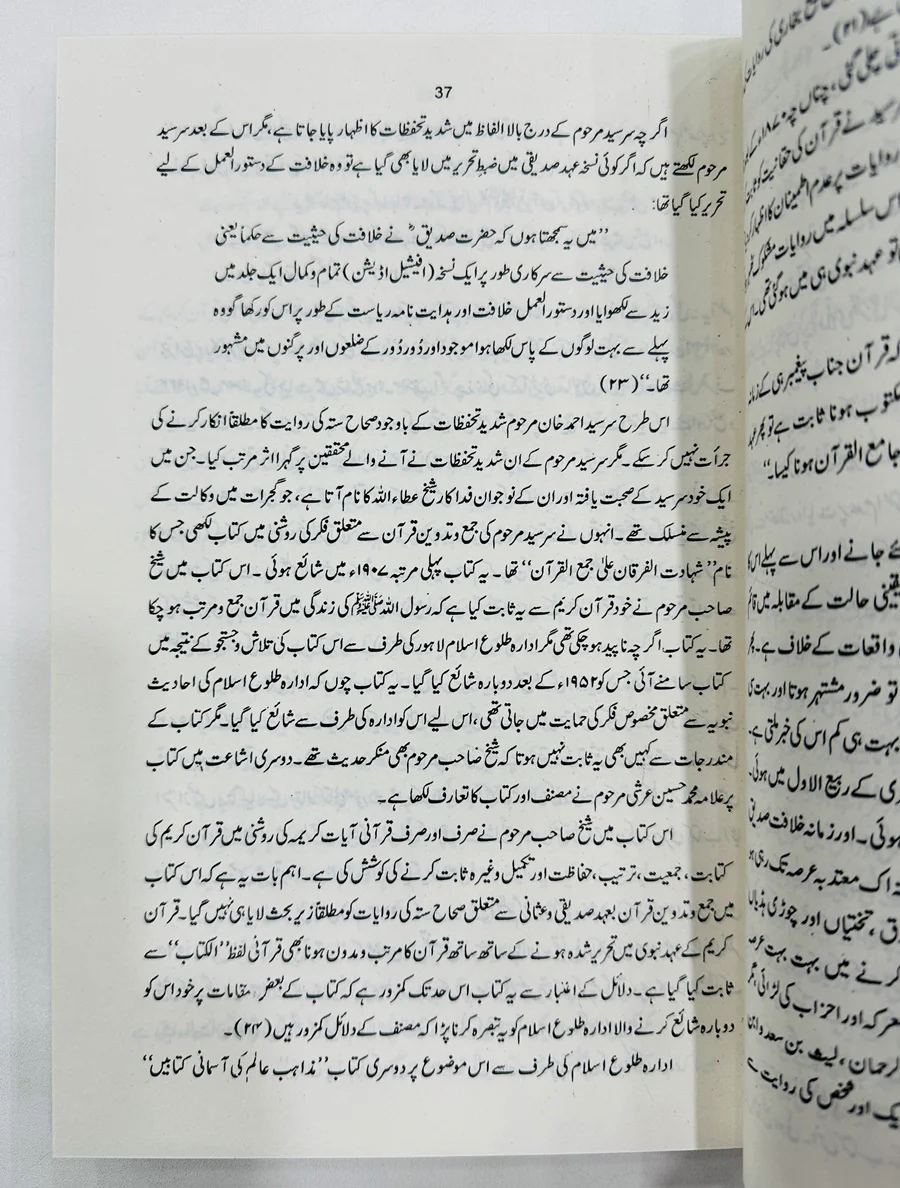 37
اگرچہ سرسید مرحوم کے درج بالا الفاظ میں شدید تحفظات کا اظہار پایا جاتا ہے، مگر اس کے بعد سرسید
مرحوم لکھتے ہیں کہ اگر کوئی نسخہ عہد صدیقی میں ضبطِ تحریر میں لایا بھی گیا ہے تو وہ خلافت کے دستور العمل کے لیے
تحریر کیا گیا تھا:
”میں یہ سمجھتا ہوں کہ حضرت صدیقؓ نے خلافت کی حیثیت سے حکماً یعنی
خلافت کی حیثیت سے سرکاری طور پر ایک نسخہ (افیشیل اڈیشن) تمام و کمال ایک جلد میں
زید سے لکھوایا اور دستور العمل خلافت اور ہدایت نامہ ریاست کے طور پر اس کو رکھا گو وہ
پہلے سے بہت لوگوں کے پاس لکھا ہوا موجود اور دُور دُور کے ضلعوں اور پرگنوں میں مشہور
تھا۔“ (۲۳)
اس طرح سرسید احمد خان مرحوم شدید تحفظات کے باوجود صحاح ستہ کی روایت کا مطلقاً انکار کرنے کی
جرأت نہیں کر سکے۔ مگر سرسید مرحوم کے ان شدید تحفظات نے آنے والے محققین پر گہرا اثر مرتب کیا۔ جن میں
ایک خود سرسید کے صحبت یافتہ اور ان کے نوجوان فدا کار شیخ عطاء اللہ کا نام آتا ہے، جو گجرات میں وکالت کے
پیشہ سے منسلک تھے۔ انہوں نے سرسید مرحوم کی جمع و تدوین قرآن سے متعلق فکر کی روشنی میں کتاب لکھی جس کا
نام ”شہادت الفرقان علیٰ جمع القرآن“ تھا۔ یہ کتاب پہلی مرتبہ ۱۹۰۷ء میں شائع ہوئی۔ اس کتاب میں شیخ
صاحب مرحوم نے خود قرآن کریم سے یہ ثابت کیا ہے کہ رسول اللہ ﷺ کی زندگی میں قرآن جمع و مرتب ہو چکا
تھا۔ یہ کتاب اگرچہ ناپید ہو چکی تھی مگر ادارہ طلوع اسلام لاہور کی طرف سے اس کتاب کی تلاش و جستجو کے نتیجہ میں
کتاب سامنے آئی جس کو ۱۹۵۲ء کے بعد دوبارہ شائع کیا گیا۔ یہ کتاب چوں کہ ادارہ طلوع اسلام کی احادیث
نبویہ سے متعلق مخصوص فکر کی حمایت میں جاتی تھی، اس لیے اس کو ادارہ کی طرف سے شائع کیا گیا۔ مگر کتاب کے
مندرجات سے کہیں بھی یہ ثابت نہیں ہوتا کہ شیخ صاحب مرحوم بھی منکر حدیث تھے۔ دوسری اشاعت میں کتاب
پر علامہ محمد حسین عرشی مرحوم نے مصنف اور کتاب کا تعارف لکھا ہے۔
اس کتاب میں شیخ صاحب مرحوم نے صرف اور صرف قرآنی آیات کریمہ کی روشنی میں قرآن کریم کی
کتابت، جمعیت، ترتیب، حفاظت اور تکمیل وغیرہ ثابت کرنے کی کوشش کی ہے۔ اہم بات یہ ہے کہ اس کتاب
میں جمع و تدوین قرآن بعہد صدیقی و عثمانی سے متعلق صحاح ستہ کی روایات کو مطلقاً زیر بحث لایا ہی نہیں گیا۔ قرآن
کریم کے عہد نبوی میں تحریر شدہ ہونے کے ساتھ ساتھ قرآن کا مرتب و مدون ہونا بھی قرآنی لفظ ”الکتاب“ سے
ثابت کیا گیا ہے۔ دلائل کے اعتبار سے یہ کتاب اس حد تک کمزور ہے کہ کتاب کے بعض مقامات پر خود اس کو
دوبارہ شائع کرنے والا ادارہ طلوع اسلام کو یہ تبصرہ کرنا پڑا کہ مصنف کے دلائل کمزور ہیں (۲۴)۔
ادارہ طلوع اسلام کی طرف سے اس موضوع پر دوسری کتاب ”مذاہب عالم کی آسمانی کتابیں“